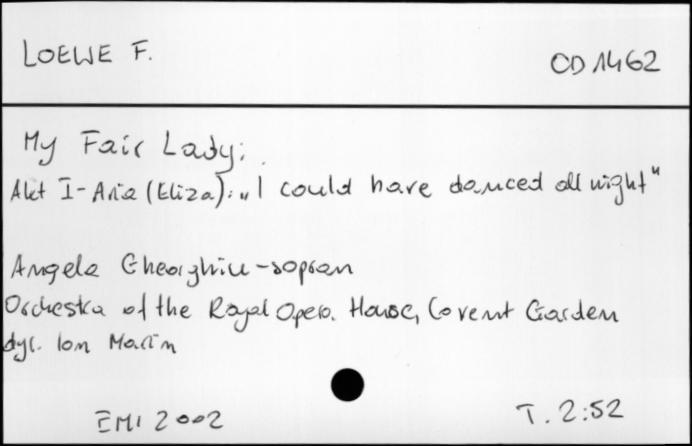 LOEWE F.
CD 1462
My Fair Lady:
Akt I - Aria (Eliza): „I could have danced all night"
Angela Gheorghiu - sopran
Orchestra of the Royal Opera House, Covent Garden
dyr. Ion Marin
EMI 2002
T. 2:52